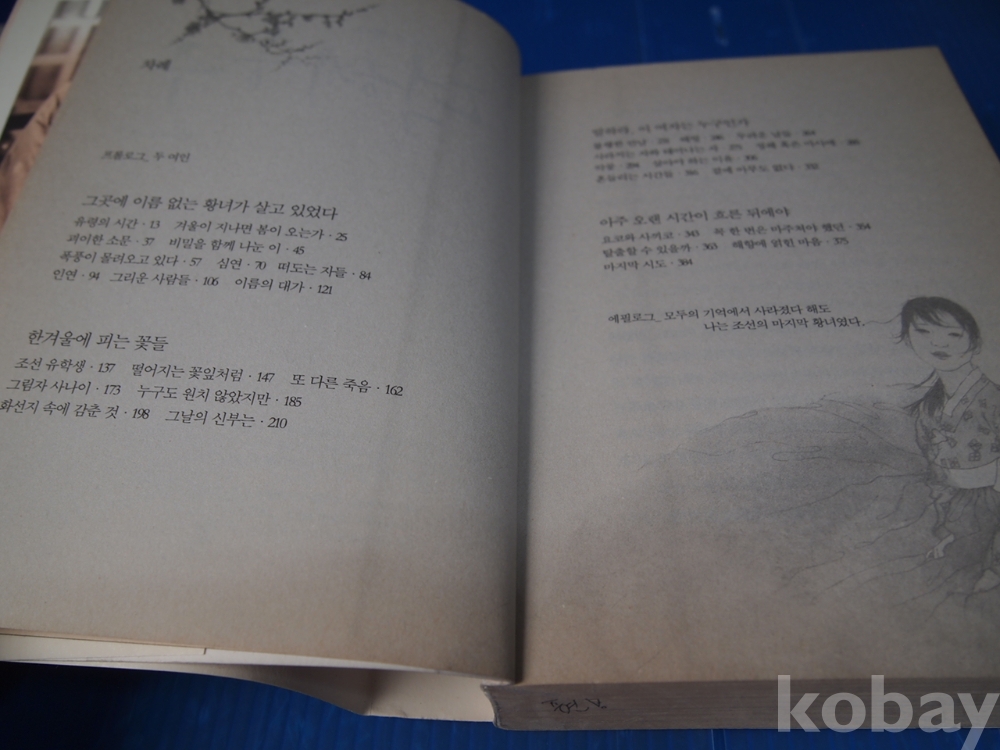 차례
프롤로그_ 두 여인
그곳에 이름 없는 황녀가 살고 있었다
유령의 시간 · 13 겨울이 지나면 봄이 오는가 · 25
괴이한 소문 · 37 비밀을 함께 나눈 이 · 45
폭풍이 몰려오고 있다 · 57 심연 · 70 떠도는 자들 · 84
인연 · 94 그리운 사람들 · 106 이름의 대가 · 121
한겨울에 피는 꽃들
조선 유학생 · 137 떨어지는 꽃잎처럼 · 147 또 다른 죽음 · 162
그림자 사나이 · 173 누구도 원치 않았지만 · 185
화선지 속에 감춘 것 · 198 그날의 신부는 · 210
말하라, 이 여자는 누구인가
흔들리는 시간들
아주 오랜 시간이 흐른 뒤에야
쿄코와 사끼코 · 343 꼭 한 번은 마주쳐야 했던 · 354
탈출할 수 있을까 · 363 해향에 얽힌 마음 · 375
마지막 시도 · 384
에필로그_ 모두의 기억에서 사라졌다 해도
나는 조선의 마지막 황녀였다.
kobay